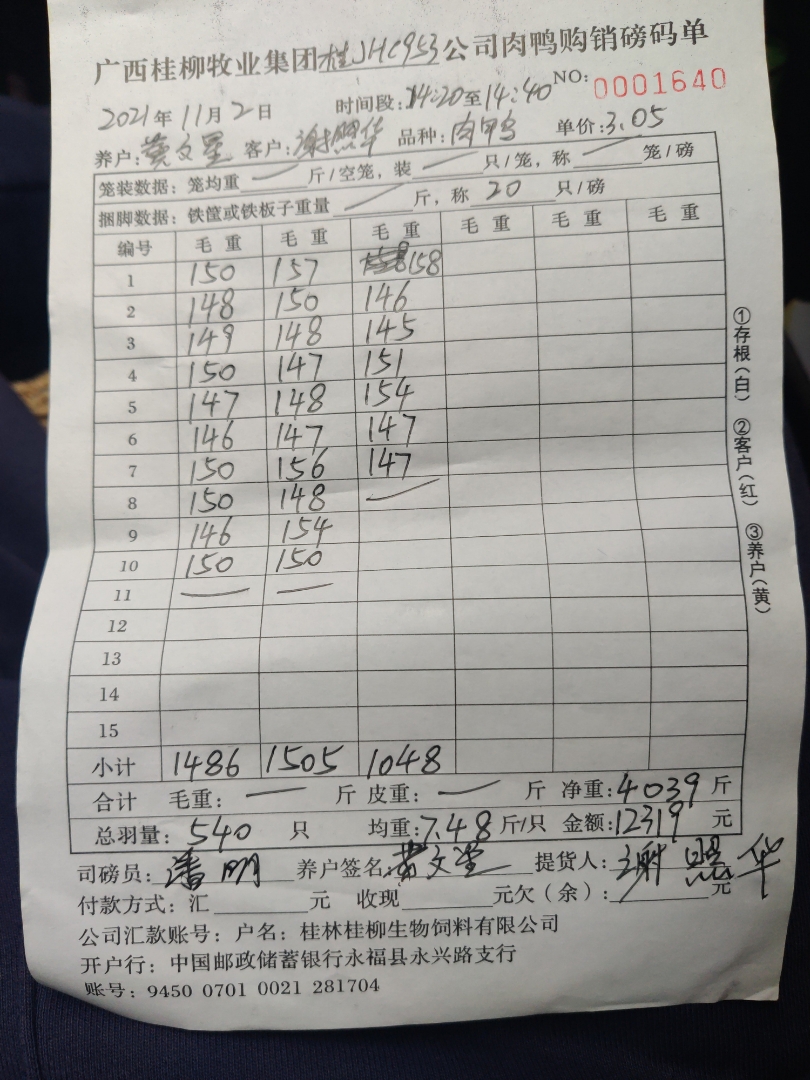 广西桂柳牧业集团桂JHC953公司肉鸭购销磅码单
2021年11月2日 时间段:14:20至14:40 NO:0001640
养户:黄文星 客户:谢照华 品种:肉鸭 单价:3.05
笼装数据:笼均重 一 斤/空笼,装 一 只/笼,称 一 笼/磅
捆脚数据:铁筐或铁板子重量 一 斤,称 20 只/磅
编号 毛重 毛重 毛重 毛重 毛重 毛重
1 150 157 158
2 148 150 146
3 149 148 145
4 150 147 151
5 147 148 154
6 146 147 147
7 150 156 147
8 150 148 一
9 146 154
10 150 150
11 一 一
12
13
14
15
小计 1486 1505 1048
合计 毛重: 一 斤 皮重: 一 斤 净重:4039斤
总羽量:540只 均重:7.48斤/只 金额:12319元
司磅员:潘明 养户签名:黄文 提货人:谢照华
付款方式:汇 元 收现 元欠(余): 元
公司汇款账号:户名:桂林桂柳生物饲料有限公司
开户行:中国邮政储蓄银行永福县永兴路支行
账号:9450 0701 0021 281704
①存根(白) ②客户(红) ③养户(黄)